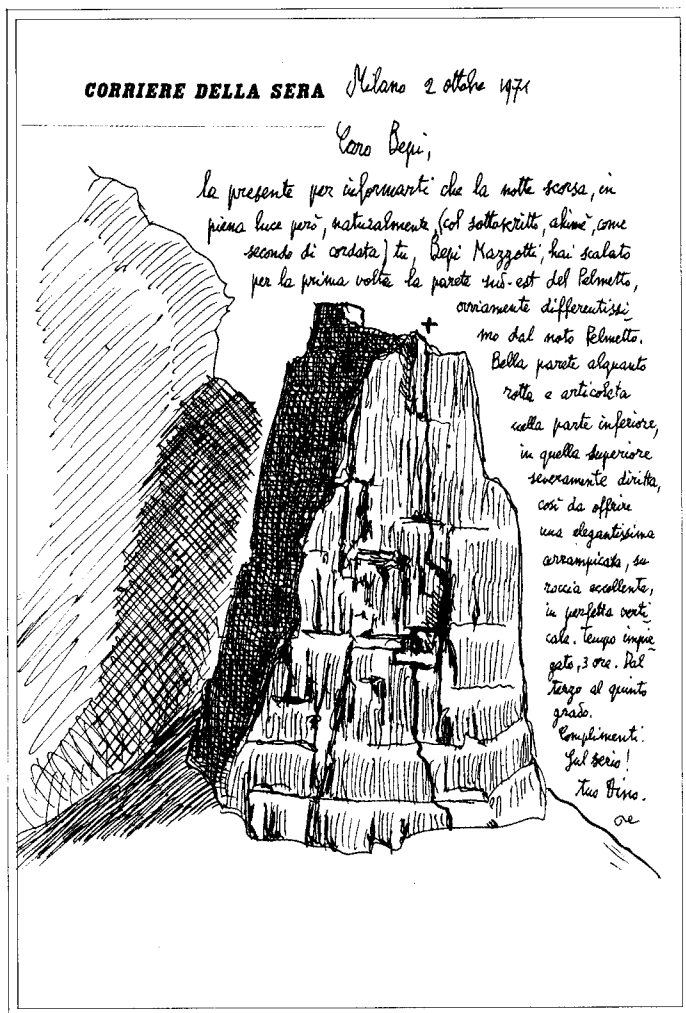 CORRIERE DELLA SERA Milano 2 ottobre 1971
Caro Bepi,
la presente per informarti che la notte scorsa, in
piena luce però, naturalmente, (col sottoscritto, ahimè, come
secondo di cordata) tu, Bepi Mazzotti, hai scalato
per la prima volta la parete sud-est del Pelmetto,
ovviamente differentissi_
mo dal noto Pelmetto.
Bella parete alquanto
rotta e articolata
nella parte inferiore,
in quella superiore
severamente diritta,
così da offrire
una elegantissima
arrampicata, su
roccia eccellente,
in perfetta verti_
cale. Tempo impie_
gato, 3 ore. Dal
terzo al quinto
grado.
Complimenti.
Sul serio!
tuo Dino.